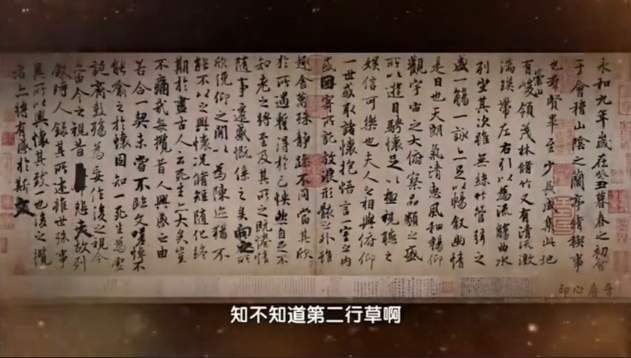 永和九年歲在癸丑暮春之初會
于會稽山陰之蘭亭脩稧事
也群賢畢至少長咸集此地
有崇山峻領茂林脩竹又有清流激
湍暎帶左右引以為流觴曲水
列坐其次雖無絲竹管弦之
盛一觴一詠亦足以暢敘幽情
是日也天朗氣清惠風和暢仰
觀宇宙之大俯察品類之盛
所以遊目騁懷足以極視聽之
娛信可樂也夫人之相與俯仰
一世或取諸懷抱悟言一室之內
或因寄所託放浪形骸之外雖
趣舍萬殊靜躁不同當其欣
於所遇蹔得於己怏然自足不
知老之將至及其所之既惓情
隨事遷感慨係之矣向之所
欣俛仰之間以為陳迹猶不
能不以之興懷況脩短隨化終
期於盡古人云死生亦大矣豈
不痛哉每攬昔人興感之由
若合一契未嘗不臨文嗟悼不
能喻之於懷固知一死生為虛
誕齊彭殤為妄作後之視今
亦由今之視昔悲夫故列
敘時人錄其所述雖世殊事
異所以興懷其致一也後之攬
者亦將有感於斯文
知不知道第二行草啊